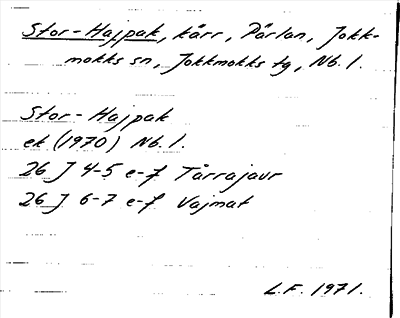 Stor-Hajpak, kärr, Pärlan, Jokk-
mokks sn, Jokkmokks tg, Nb. l.
Stor-Hajpak
ek (1970) Nb. l.
26 J 4-5 e-f Tårrajaur
26 J 6-7 e-f Vajmat
L.F. 1971.